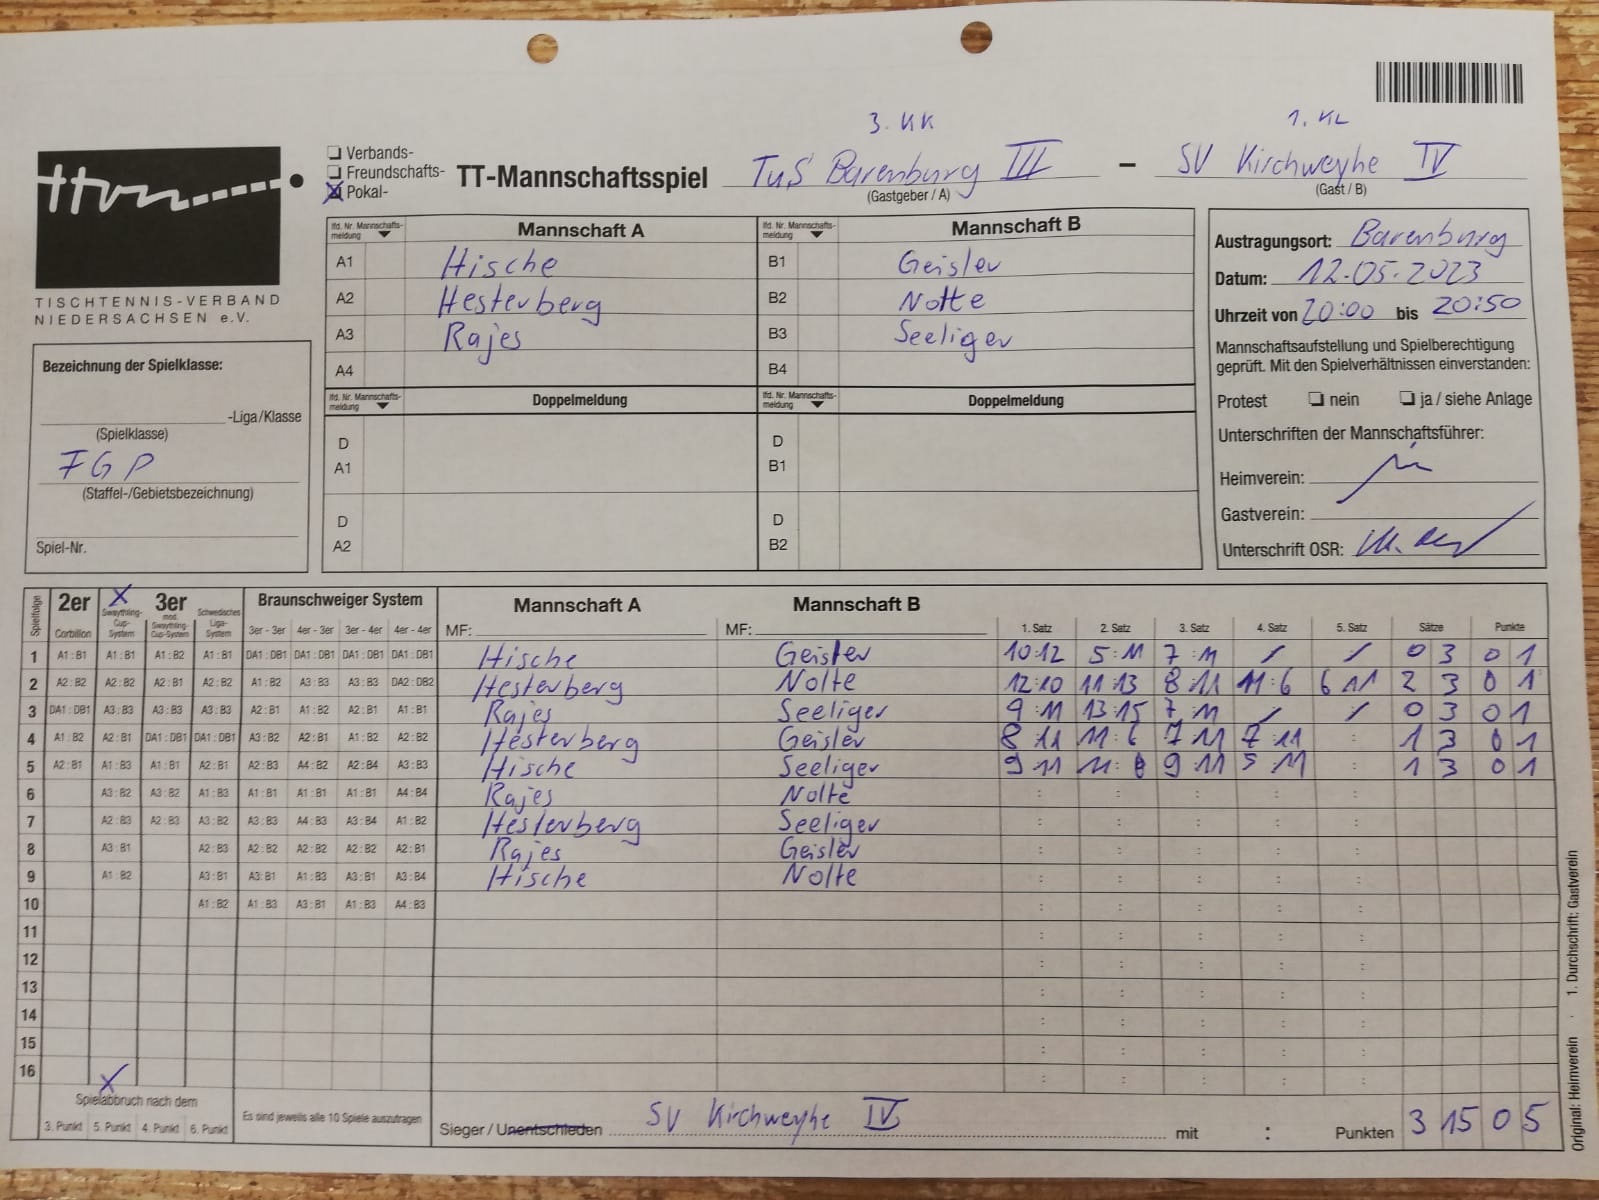 3. KK
1. KL
❏ Verbands-
❏ Freundschafts-
☒ Pokal-
TT-Mannschaftsspiel TuS Barenburg III – SV Kirchweyhe IV
(Gastgeber / A) (Gast / B)
ttvn
TISCHTENNIS-VERBAND
NIEDERSACHSEN e.V.
Bezeichnung der Spielklasse:
-Liga/Klasse
(Spielklasse)
FGP
(Staffel-/Gebietsbezeichnung)
Spiel-Nr.
lfd. Nr. Mannschafts-meldung Mannschaft A lfd. Nr. Mannschafts-meldung Mannschaft B
A1 Hische B1 Geisler
A2 Hesterberg B2 Nolte
A3 Rajes B3 Seeliger
A4 B4
lfd. Nr. Mannschafts-meldung Doppelmeldung lfd. Nr. Mannschafts-meldung Doppelmeldung
D D
A1 B1
D D
A2 B2
Austragungsort: Barenburg
Datum: 12.05.2023
Uhrzeit von 20:00 bis 20:50
Mannschaftsaufstellung und Spielberechtigung
geprüft. Mit den Spielverhältnissen einverstanden:
Protest ❏ nein ❏ ja / siehe Anlage
Unterschriften der Mannschaftsführer:
Heimverein:
Gastverein:
Unterschrift OSR:
Spielfolge 2er X 3er Braunschweiger System Mannschaft A Mannschaft B
Corbillon Swaythling-Cup-System mod. Swaythling-Cup-System Schwedisches Liga-System 3er - 3er 4er - 3er 3er - 4er 4er - 4er MF: MF: 1. Satz 2. Satz 3. Satz 4. Satz 5. Satz Sätze Punkte
1 A1 : B1 A1 : B1 A1 : B2 A1 : B1 DA1 : DB1 DA1 : DB1 DA1 : DB1 DA1 : DB1 Hische Geisler 10:12 5:11 7:11 / / 0 3 0 1
2 A2 : B2 A2 : B2 A2 : B1 A2 : B2 A1 : B2 A3 : B3 A3 : B3 DA2 : DB2 Hesterberg Nolte 12:10 11:13 8:11 11:6 6 11 2 3 0 1
3 DA1 : DB1 A3 : B3 A3 : B3 A3 : B3 A2 : B1 A1 : B2 A2 : B1 A1 : B1 Rajes Seeliger 9:11 13:15 7:11 / / 0 3 0 1
4 A1 : B2 A2 : B1 DA1 : DB1 DA1 : DB1 A3 : B2 A2 : B1 A1 : B2 A2 : B2 Hesterberg Geisler 8 11 11:6 7 11 7:11 : 1 3 0 1
5 A2 : B1 A1 : B3 A1 : B1 A2 : B1 A2 : B3 A4 : B2 A2 : B4 A3 : B3 Hische Seeliger 9 11 11:8 9 11 5 11 : 1 3 0 1
6 A3 : B2 A3 : B2 A1 : B3 A1 : B1 A1 : B1 A1 : B1 A4 : B4 Rajes Nolte : : : : :
7 A2 : B3 A2 : B3 A3 : B2 A3 : B3 A4 : B3 A3 : B4 A1 : B2 Hesterberg Seeliger : : : : :
8 A3 : B1 A2 : B3 A2 : B2 A2 : B2 A2 : B2 A2 : B1 Rajes Geisler : : : : :
9 A1 : B2 A3 : B1 A3 : B1 A1 : B3 A3 : B1 A3 : B4 Hische Nolte : : : : :
10 A1 : B2 A1 : B3 A3 : B1 A1 : B3 A4 : B3 : : : : :
11 : : : : :
12 : : : : :
13 : : : : :
14 : : : : :
15 : : : : :
16 : : : : :
X
Spielabbruch nach dem
3. Punkt 5. Punkt 4. Punkt 6. Punkt
Es sind jeweils alle 10 Spiele auszutragen
Sieger / Unentschieden SV Kirchweyhe IV mit : Punkten 3 15 0 5
Original: Heimverein · 1. Durchschrift: Gastverein